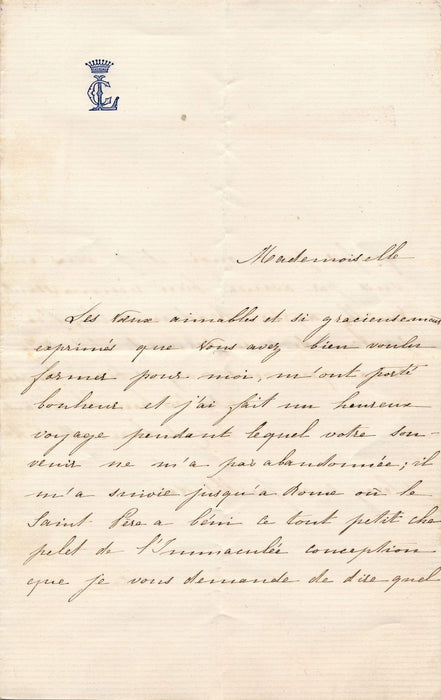 CL
Mademoiselle
Les vœux aimables et si gracieusement
exprimés que vous avez bien voulu
former pour moi, m'ont porté
bonheur et j'ai fait un heureux
voyage pendant lequel votre sou-
venir ne m'a pas abandonnée; il
m'a suivie jusqu'a Rome où le
Saint Père a béni ce tout petit cha
pelet de l'Immaculée conception
que je vous demande de dire quel